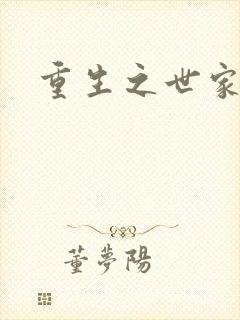 重生之世家
董夢陽